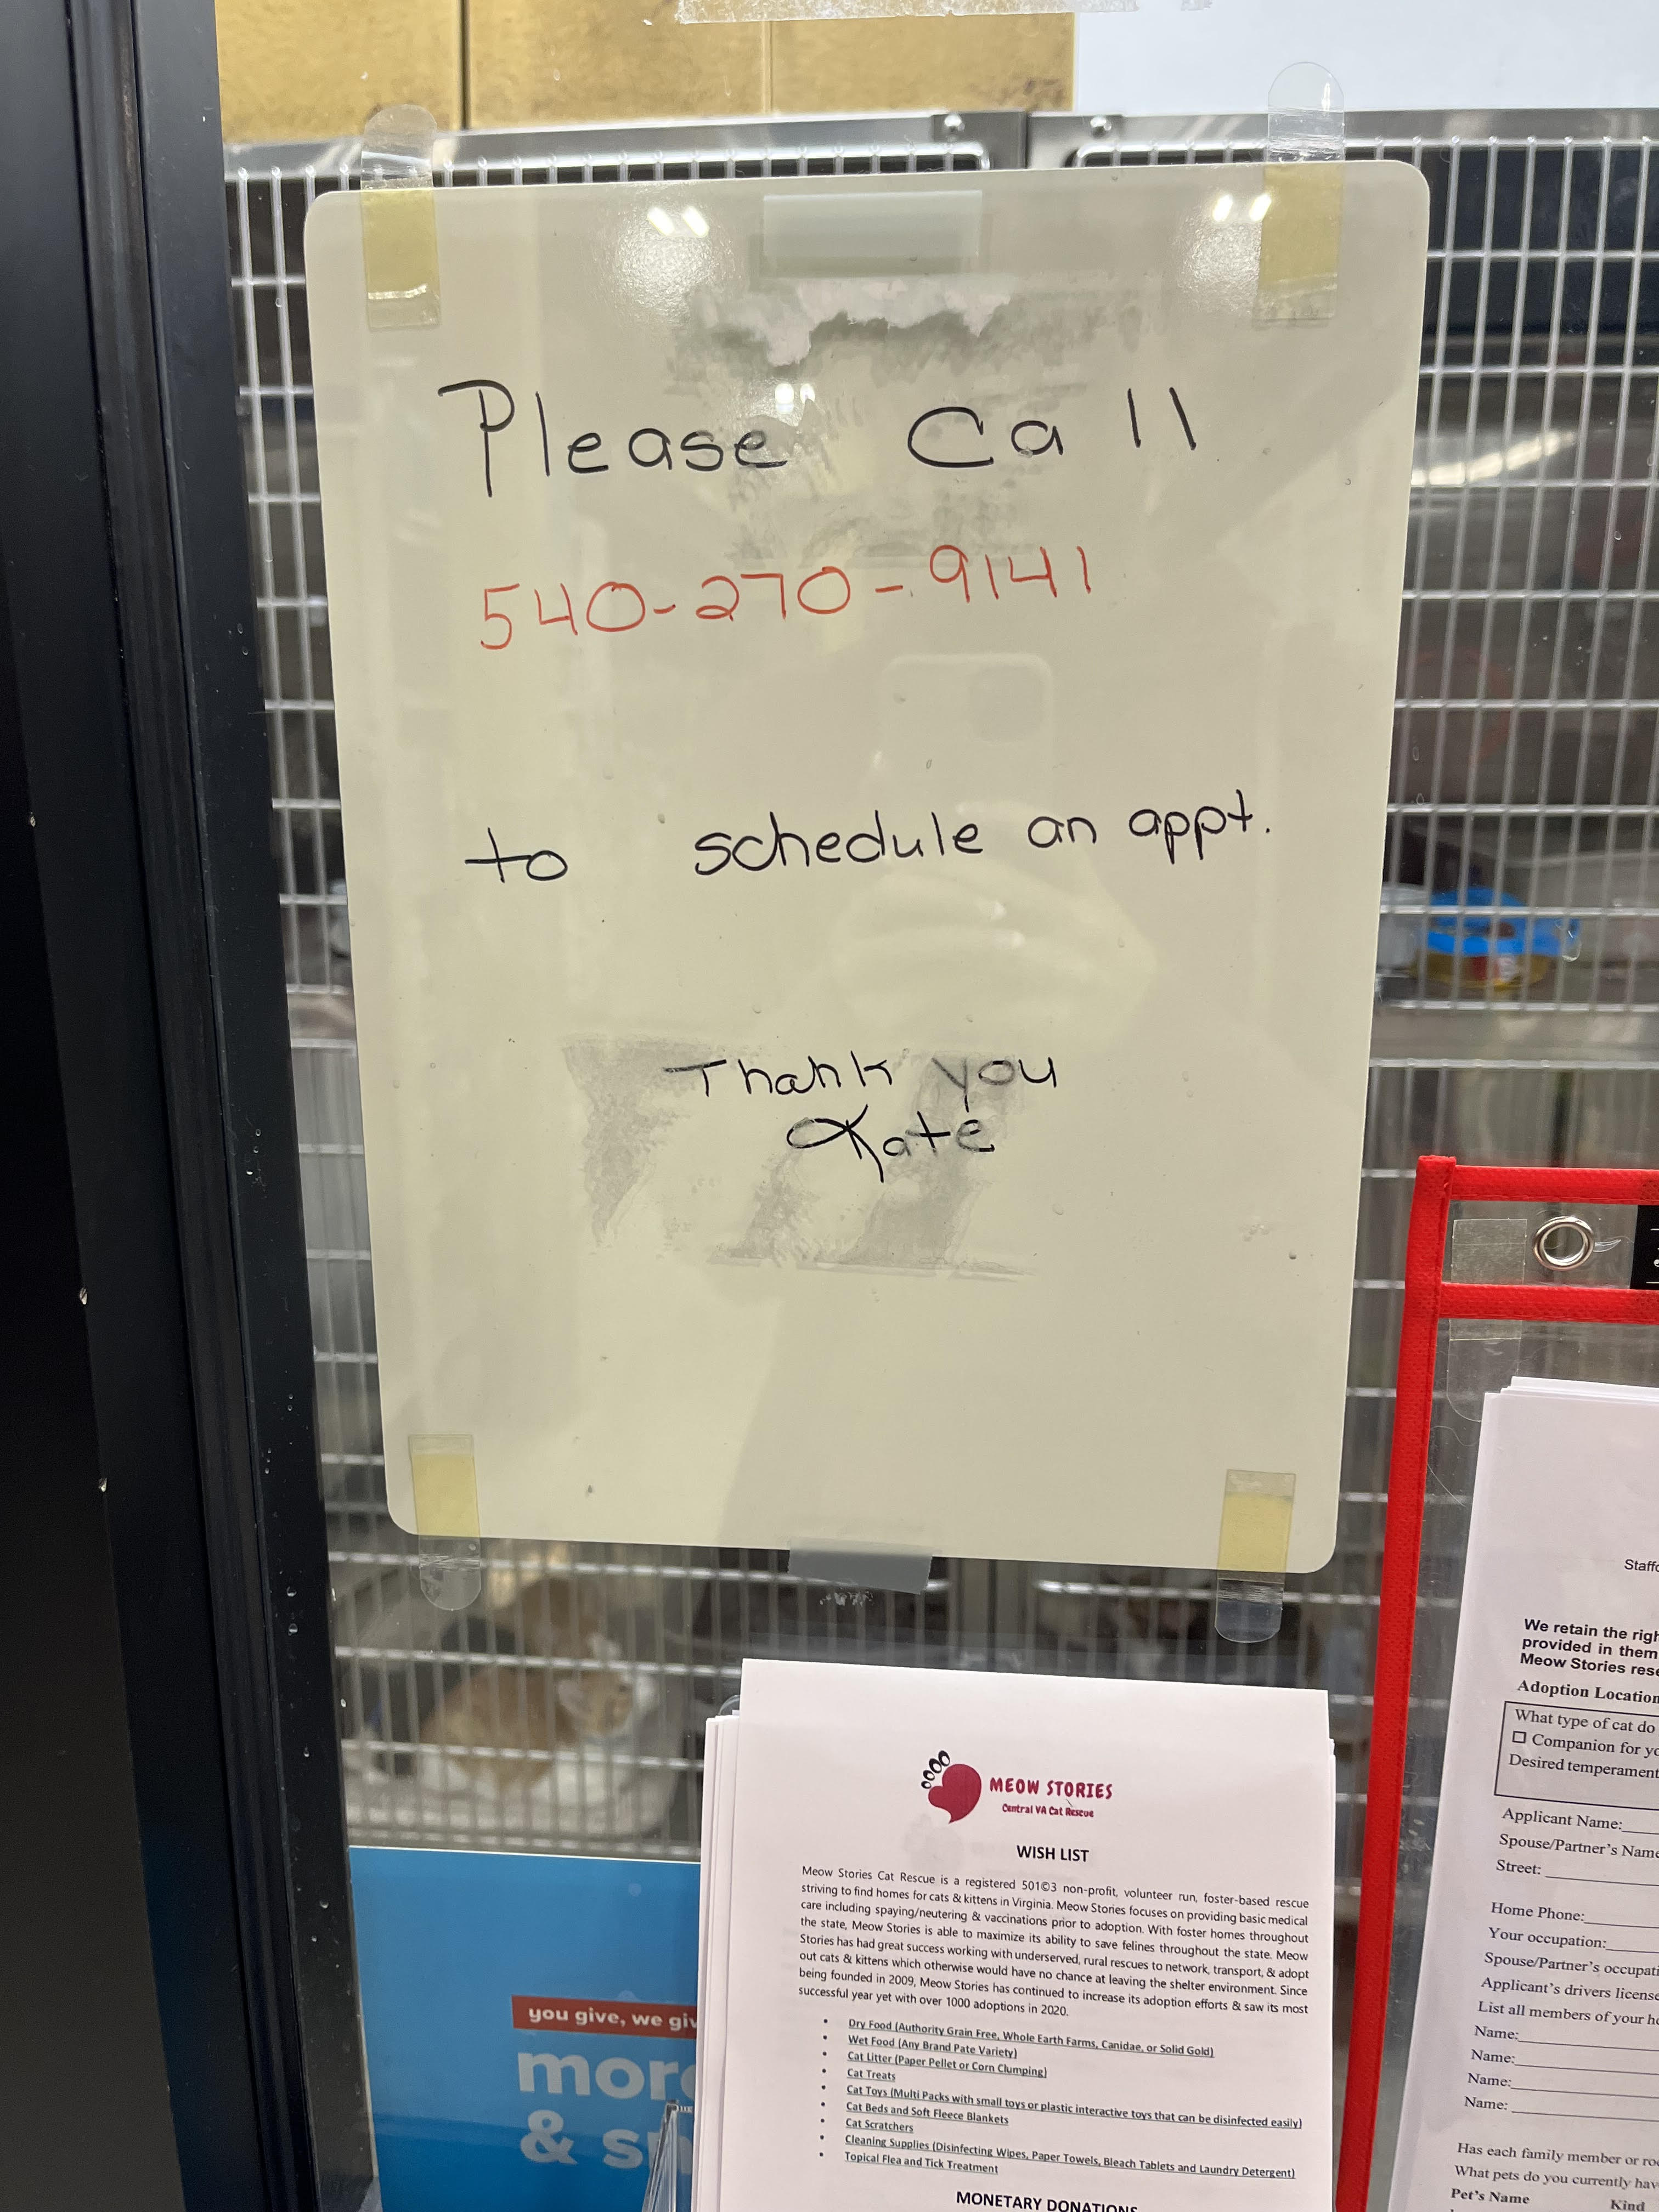 Please Call
540-270-9141
to schedule an appt.
Thank you
Kate
MEOW STORIES
Central VA Cat Rescue
WISH LIST
Meow Stories Cat Rescue is a registered 501©3 non-profit, volunteer run, foster-based rescue
striving to find homes for cats & kittens in Virginia. Meow Stories focuses on providing basic medical
care including spaying/neutering & vaccinations prior to adoption. With foster homes throughout
the state, Meow Stories is able to maximize its ability to save felines throughout the state. Meow
Stories has had great success working with underserved, rural rescues to network, transport, & adopt
out cats & kittens which otherwise would have no chance at leaving the shelter environment. Since
being founded in 2009, Meow Stories has continued to increase its adoption efforts & saw its most
successful year yet with over 1000 adoptions in 2020.
• Dry Food (Authority Grain Free, Whole Earth Farms, Canidae, or Solid Gold)
• Wet Food (Any Brand Pate Variety)
• Cat Litter (Paper Pellet or Corn Clumping)
• Cat Treats
• Cat Toys (Multi Packs with small toys or plastic interactive toys that can be disinfected easily)
• Cat Beds and Soft Fleece Blankets
• Cat Scratchers
• Cleaning Supplies (Disinfecting Wipes, Paper Towels, Bleach Tablets and Laundry Detergent)
• Topical Flea and Tick Treatment
MONETARY DONATIONS
you give, we giv
more
& sn
Staffo
We retain the righ
provided in them
Meow Stories rese
Adoption Location
What type of cat do
☐ Companion for yo
Desired temperament
Applicant Name:
Spouse/Partner's Name
Street:
Home Phone:
Your occupation:
Spouse/Partner's occupati
Applicant's drivers license
List all members of your ho
Name:
Name:
Name:
Name:
Has each family member or roo
What pets do you currently hav
Pet's Name Kind